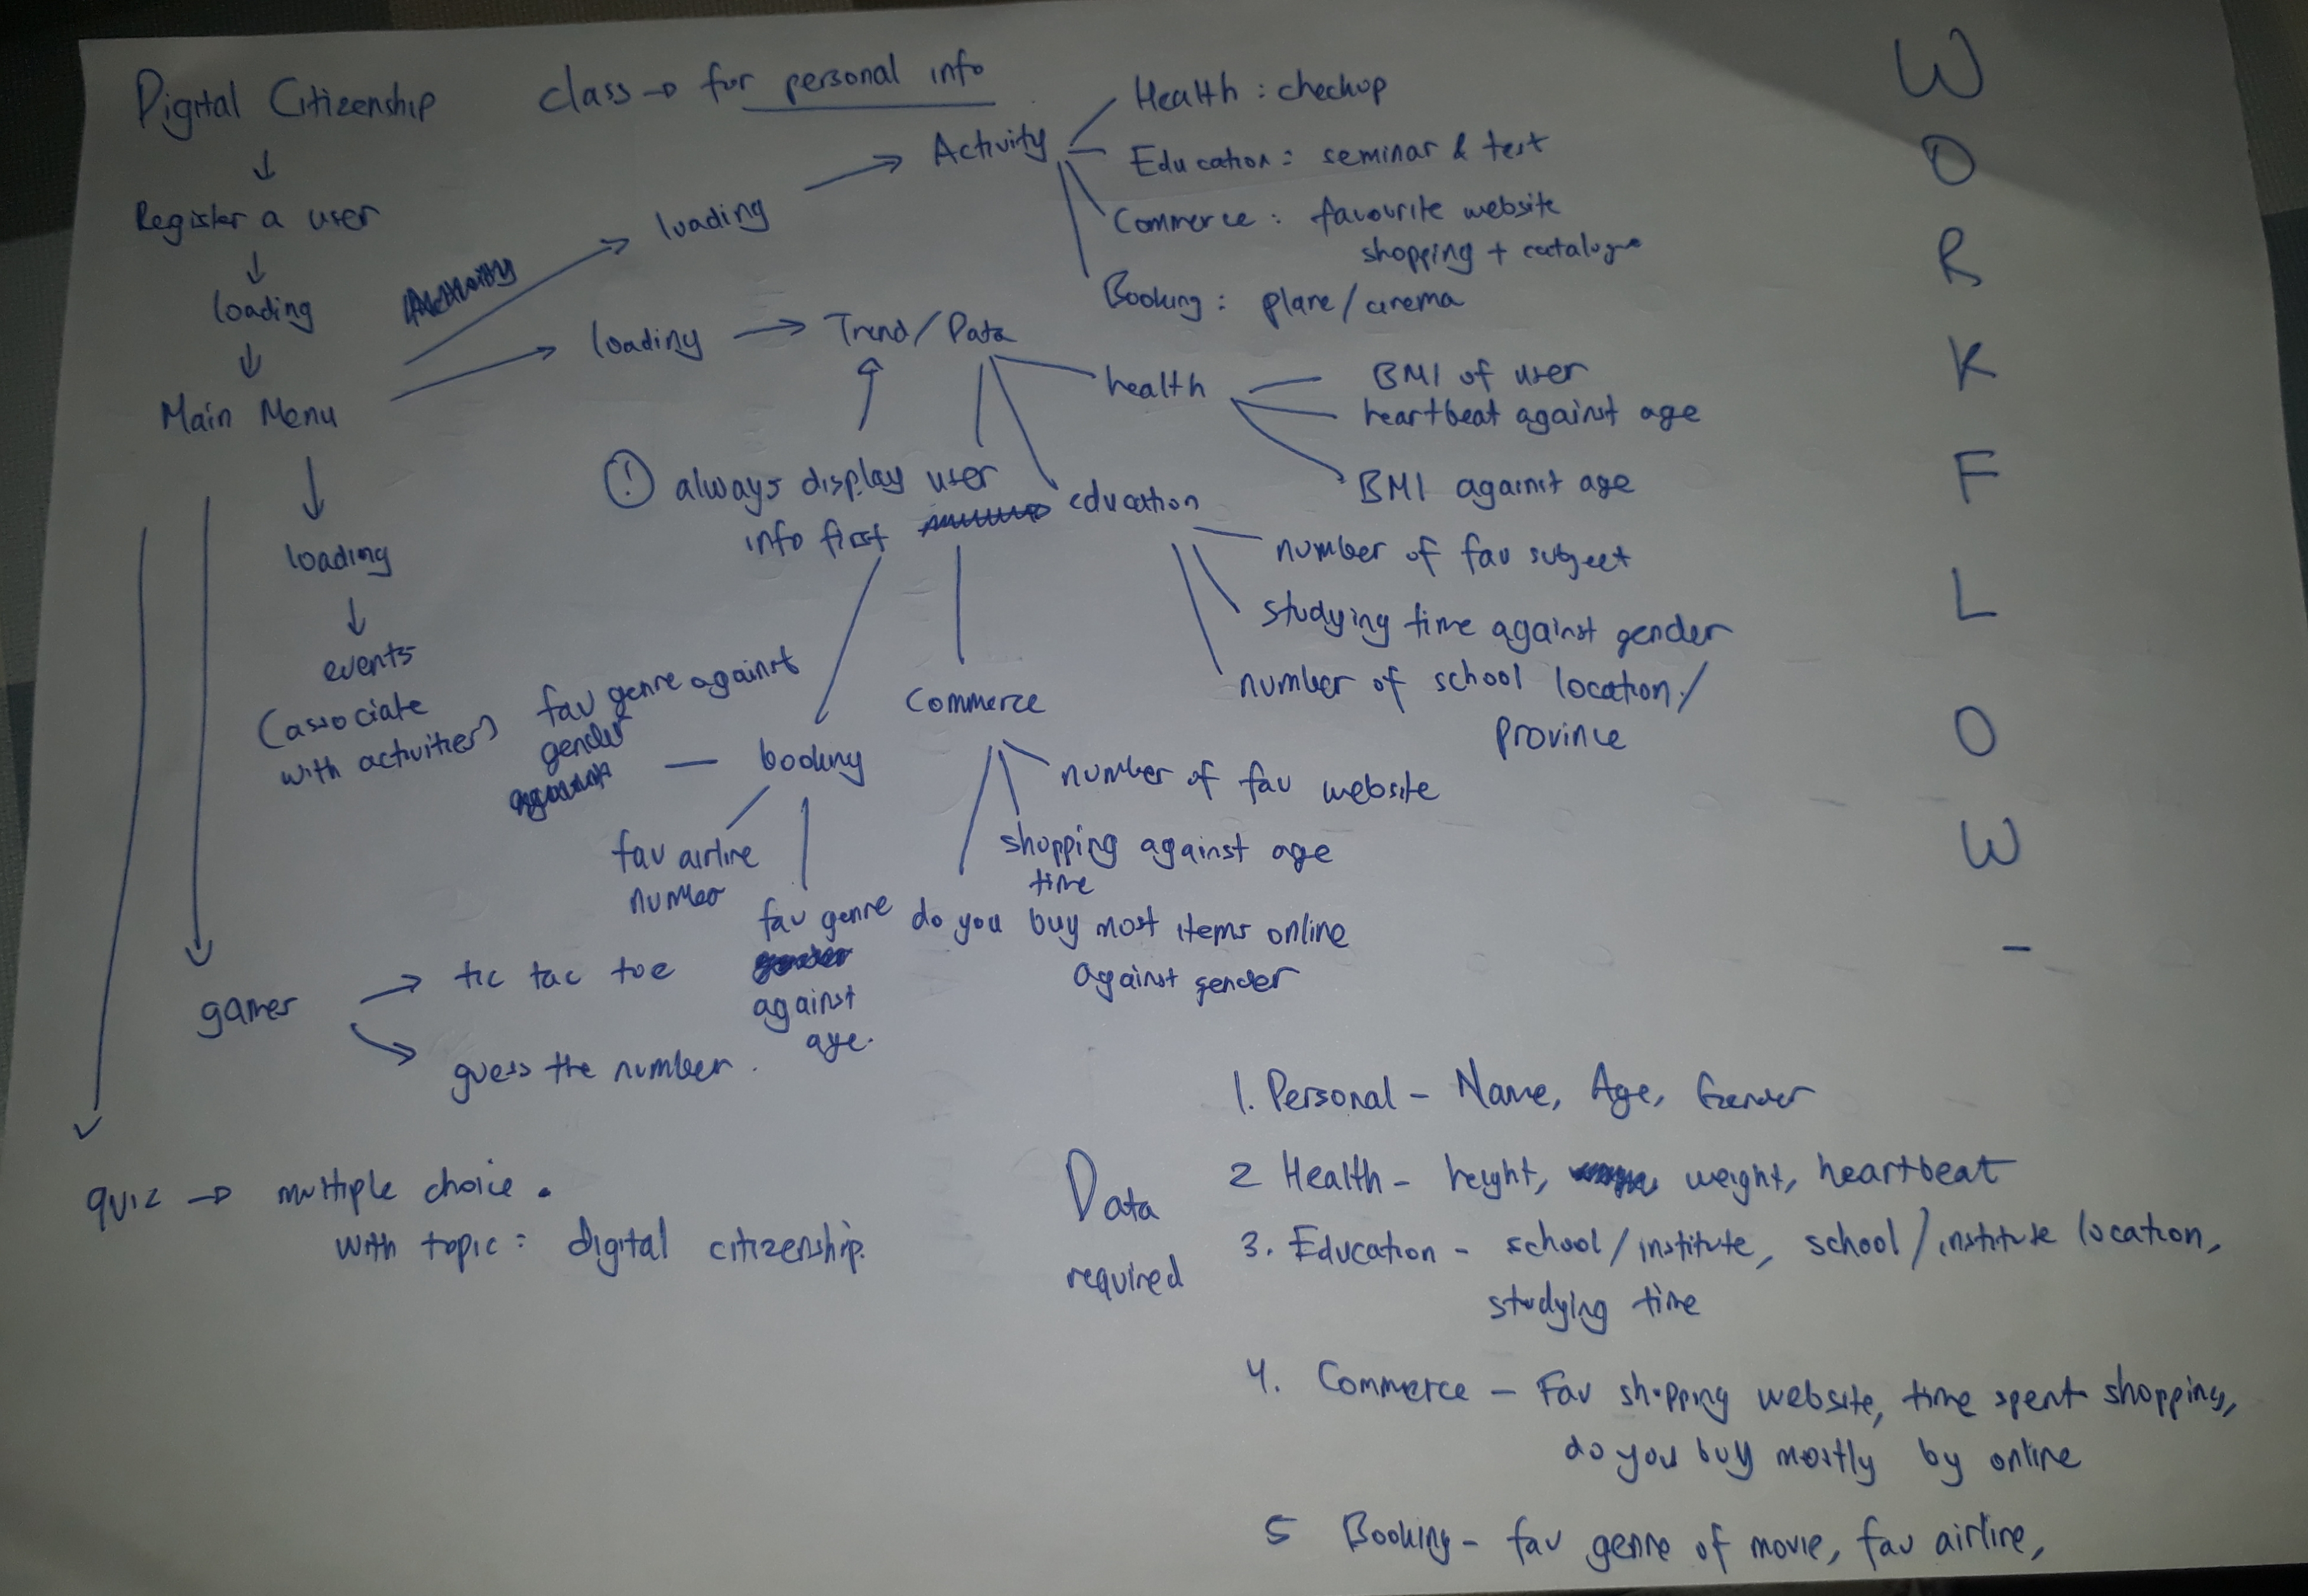 Digital Citizenship
class → for personal info
↓
Register a user
↓
loading
↓
Main Menu
→ loading → Activity
Health : checkup
Education : seminar & test
Commerce : favourite website
shopping + catalogue
Booking : plane / cinema
→ loading → Trend / Data
! always display user
info first
health
BMI of user
heartbeat against age
BMI against age
education
number of fav subject
studying time against gender
number of school location /
province
Commerce
number of fav website
shopping against age
time
do you buy most items online
against gender
booking
fav genre against
gender
fav airline
number
fav genre
against
age.
↓
loading
↓
events
(associate
with activities)
games
→ tic tac toe
→ guess the number.
quiz → multiple choice.
with topic : digital citizenship.
W
O
R
K
F
L
O
W
-
Data
required
1. Personal - Name, Age, Gender
2 Health - height, weight, heartbeat
3. Education - school / institute, school / institute location,
studying time
4. Commerce - Fav shopping website, time spent shopping,
do you buy mostly by online
5 Booking - fav genre of movie, fav airline,